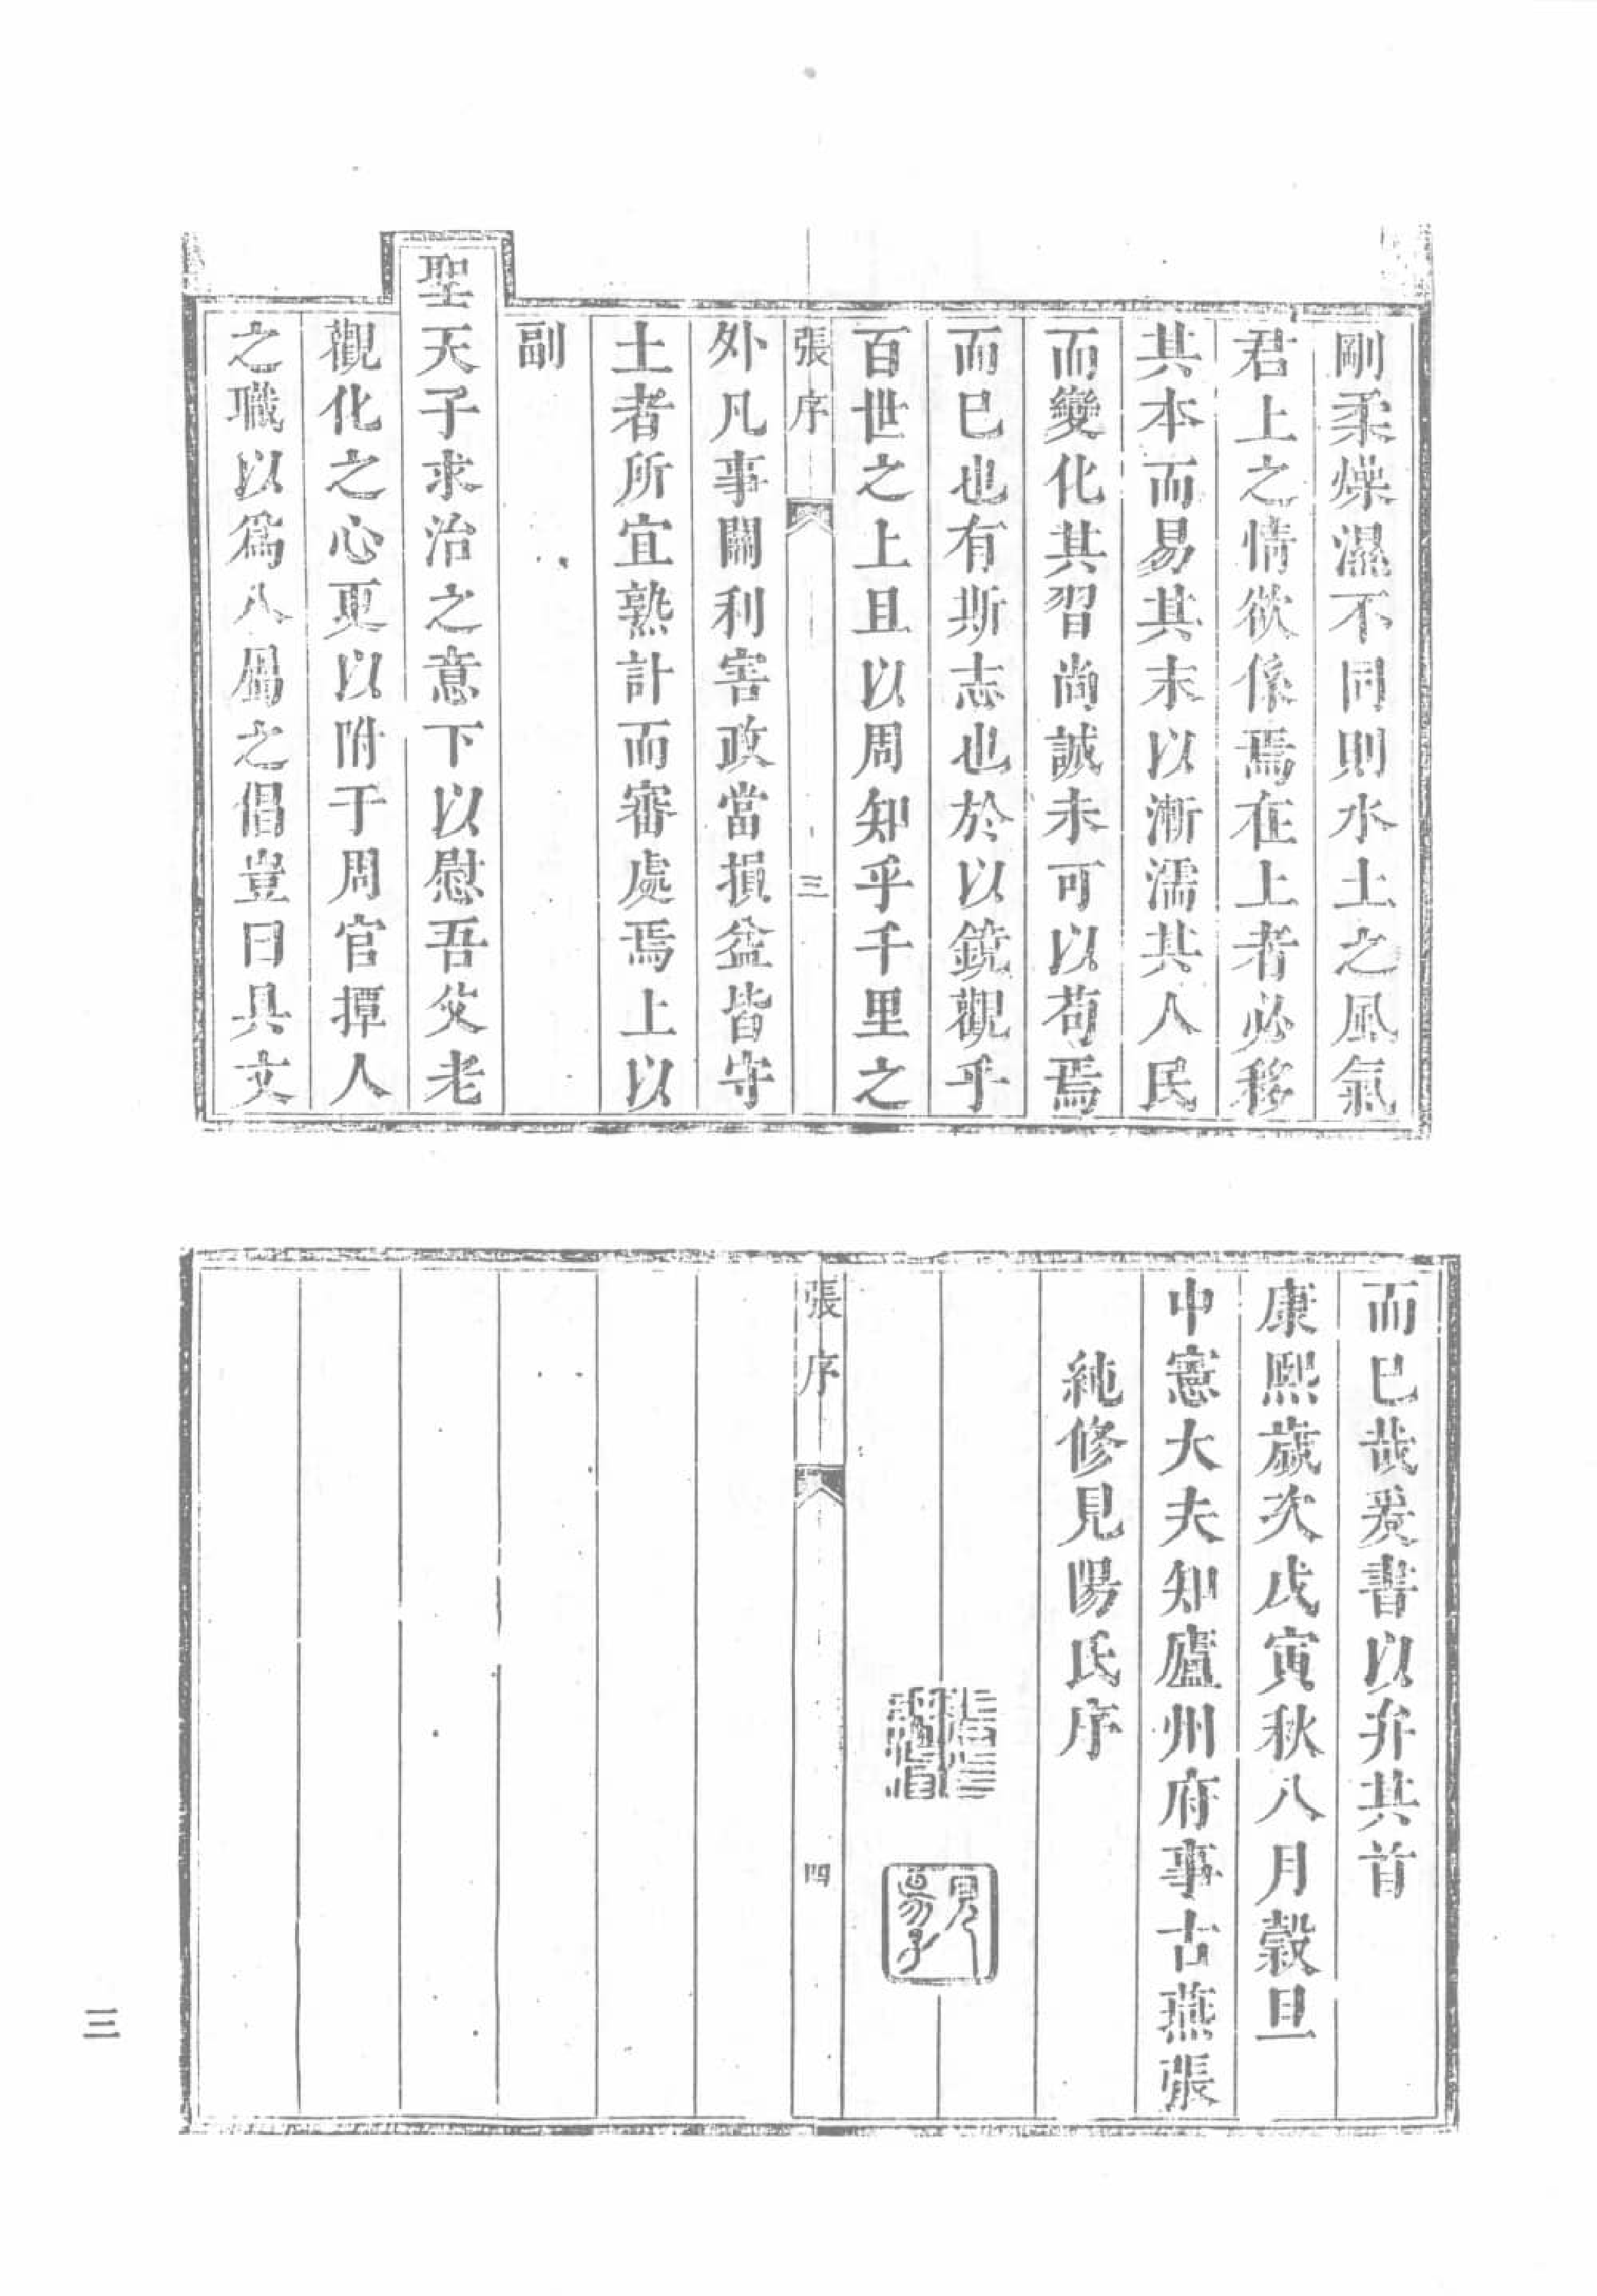 剛柔燥濕不同則水土之風氣
君上之情欲係焉在上者必移
其本而易其末以漸濡其人民
而變化其習尚誠未可以苟焉
而已也有斯志也於以鏡觀乎
百世之上且以周知乎千里之
張序
三
外凡事關利害政當損益皆守
土者所宜熟計而審處焉上以
副
聖天子求治之意下以慰吾父老
觀化之心更以附于周官撢人
之職以爲人屬之倡豈曰具文
而已哉爰書以弁其首
康熙歲次戊寅秋八月穀旦
中憲大夫知廬州府事古燕張
純修見陽氏序
見陽子
張序
四
三